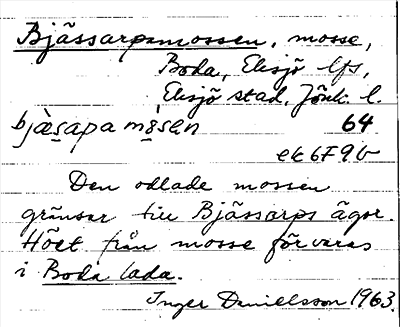 Bjässarpsmossen, mosse,
Boda, Eksjö lfs,
Eksjö stad, Jönk. l.
bjæ̀sapamɔ́sən 64
ek 6F9b
Den odlade mossen
gränsar till Bjässarps ägor.
Höet från mosse förvaras
i Boda lada.
Inger Danielsson 1963.